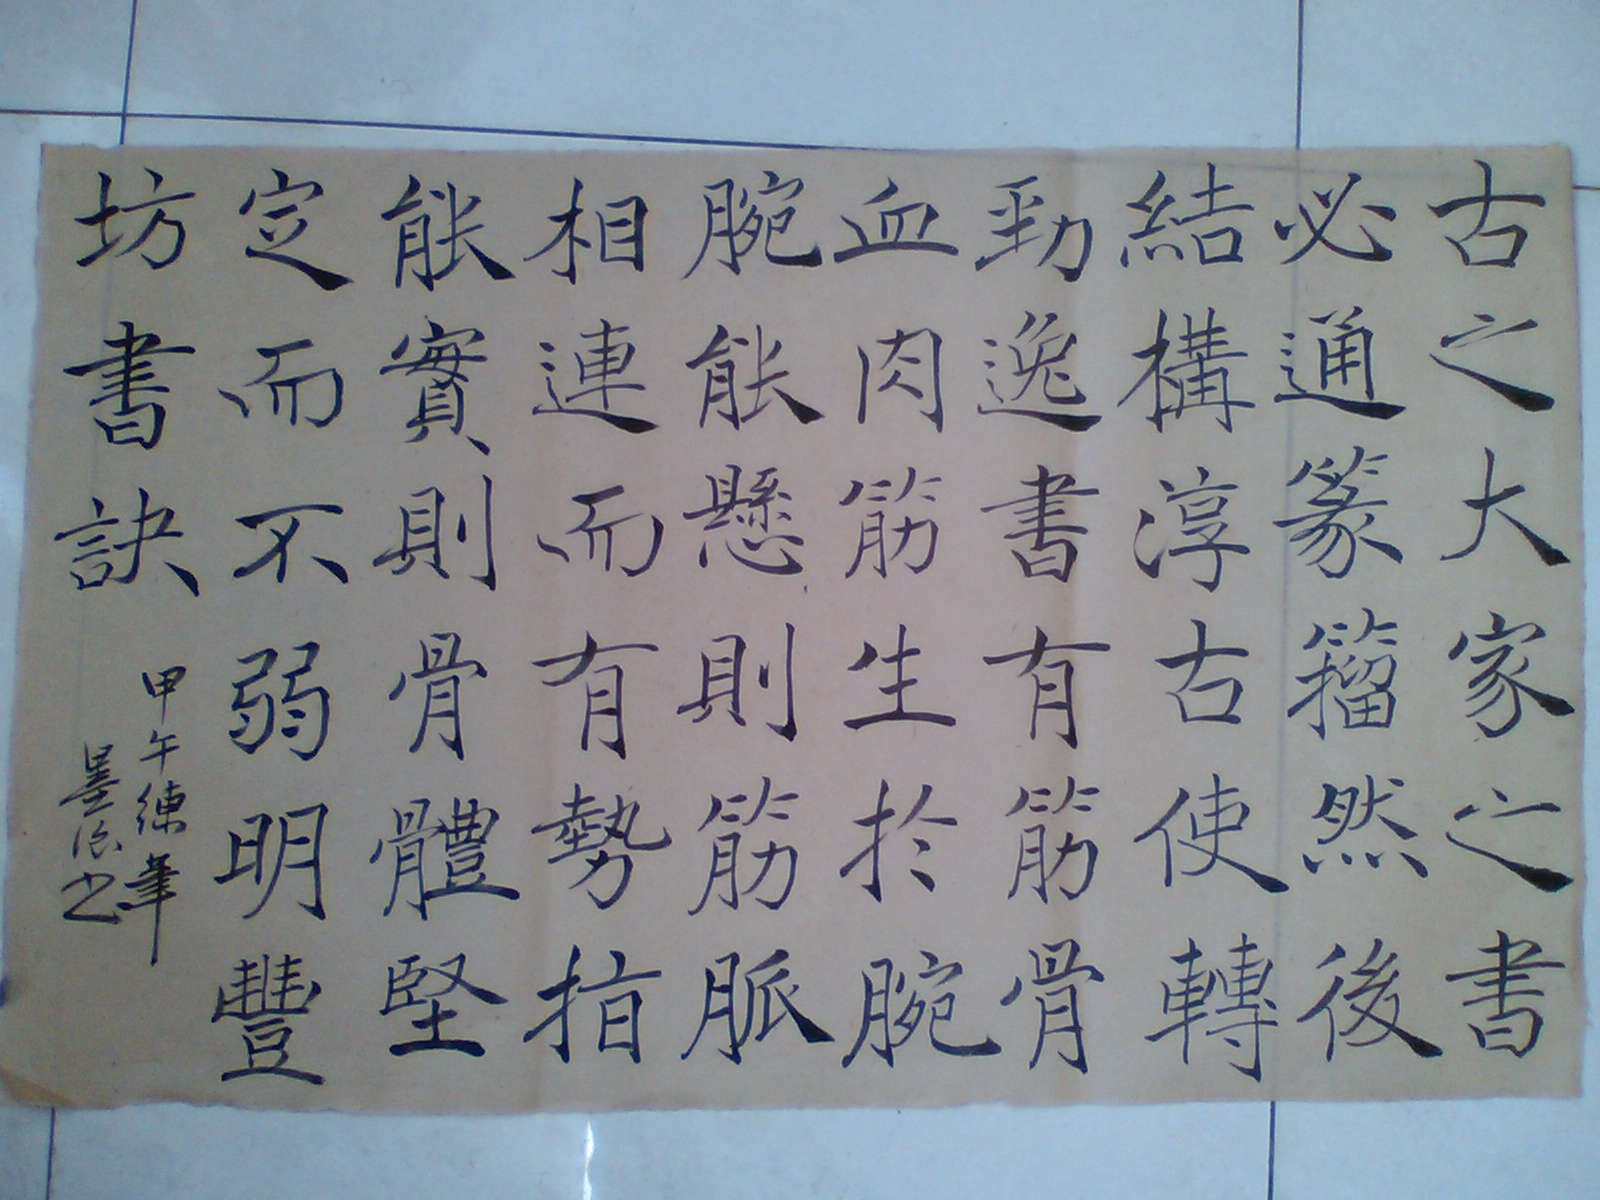 古之大家之書
必通篆籀然後
結構淳古使轉
勁逸書有筋骨
血肉筋生於腕
腕能懸則筋脈
相連而有勢指
能實則骨體堅
定而不弱明豐
坊書訣
甲午練筆
墨